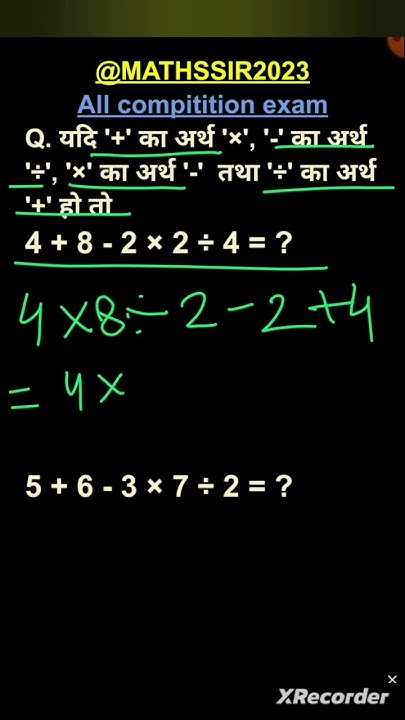 @MATHSSIR2023
All compitition exam
Q. यदि '+' का अर्थ '×', '-' का अर्थ
'÷', '×' का अर्थ '-' तथा '÷' का अर्थ
'+' हो तो
4 + 8 - 2 × 2 ÷ 4 = ?
4 × 8 ÷ 2 - 2 + 4
= 4 ×
5 + 6 - 3 × 7 ÷ 2 = ?
×
XRecorder